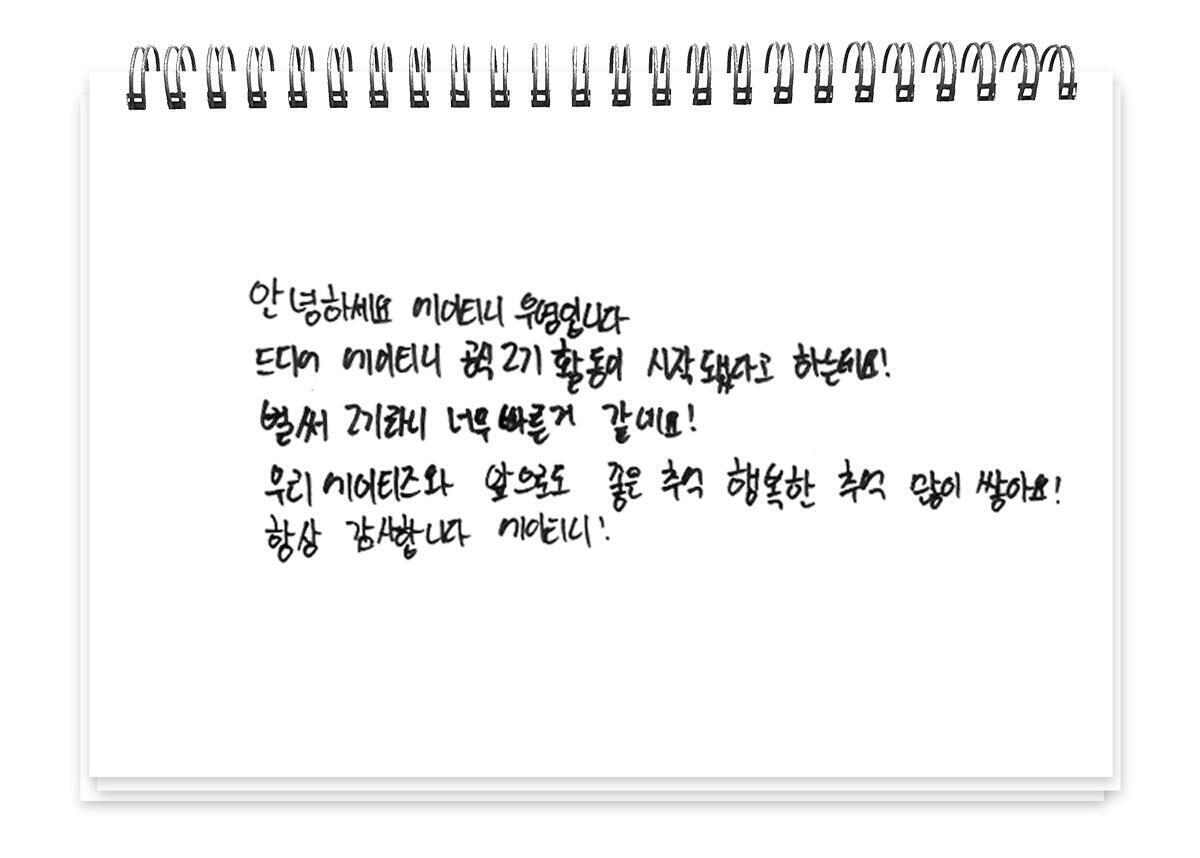 안녕하세요 에이티니 우영입니다
드디어 에이티니 공식 2기 활동이 시작됐다고 하는데요!
벌써 2기라니 너무 빠른거 같네요!
우리 에이티즈와 앞으로도 좋은 추억 행복한 추억 많이 쌓아요!
항상 감사합니다 에이티니!